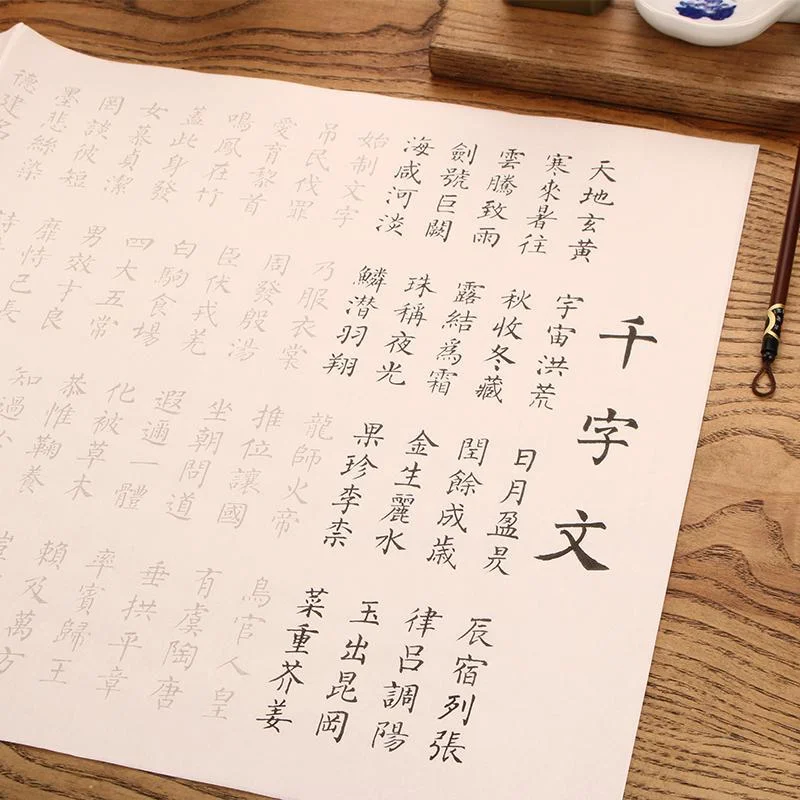 千字文
天地玄黄 宇宙洪荒 日月盈昃 辰宿列張
寒來暑往 秋收冬藏 閏餘成歲 律吕調陽
雲騰致雨 露結爲霜 金生麗水 玉出昆岡
劍號巨闕 珠稱夜光 果珍李柰 菜重芥姜
海咸河淡 鱗潜羽翔 龍師火帝 鳥官人皇
始制文字 乃服衣裳 推位讓國 有虞陶唐
吊民伐罪 周發殷湯 坐朝問道 垂拱平章
愛育黎首 臣伏戎羌 遐邇一體 率賓歸王
鳴鳳在竹 白駒食場 化被草木 賴及萬方
蓋此身發 四大五常 恭惟鞠養
女慕貞潔 男效才良 知過
罔談彼短 靡恃己長
墨悲絲染
德建名